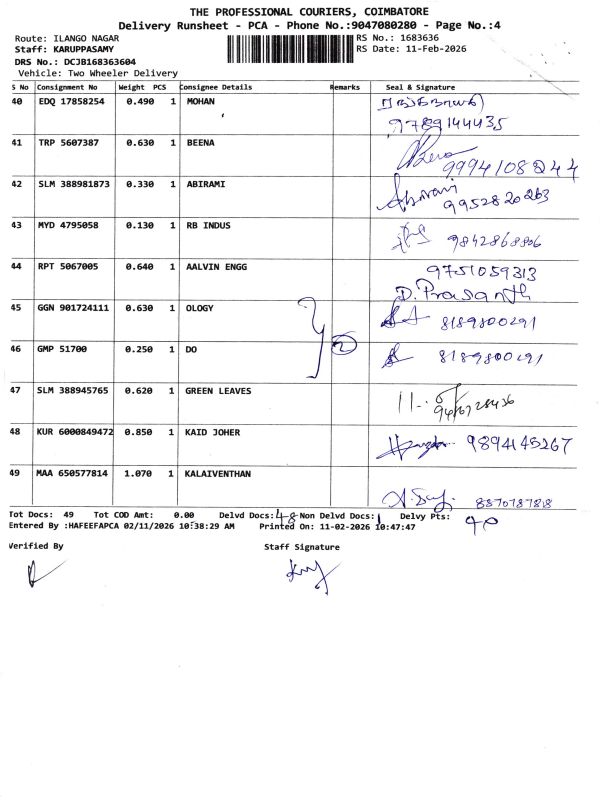 THE PROFESSIONAL COURIERS, COIMBATORE
Delivery Runsheet - PCA - Phone No.:9047080280 - Page No.:4
Route: ILANGO NAGAR
RS No.: 1683636
Staff: KARUPPASAMY
RS Date: 11-Feb-2026
DRS No.: DCJB168363604
Vehicle: Two Wheeler Delivery
S No Consignment No Weight PCS Consignee Details Remarks Seal & Signature
40 EDQ 17858254 0.490 1 MOHAN
9789144435
41 TRP 5607387 0.630 1 BEENA
Beena 9994108244
42 SLM 388981873 0.330 1 ABIRAMI
Abirami 9952820263
43 MYD 4795058 0.130 1 RB INDUS
9842868806
44 RPT 5067005 0.640 1 AALVIN ENGG
9751059313
D. Prasanth
45 GGN 901724111 0.630 1 OLOGY
8189800291
46 GMP 51700 0.250 1 DO 2
8189800291
47 SLM 388945765 0.620 1 GREEN LEAVES
48 KUR 6000849472 0.850 1 KAID JOHER
9894145267
49 MAA 650577814 1.070 1 KALAIVENTHAN
8870787818
Tot Docs: 49 Tot COD Amt: 0.00 Delvd Docs: 48 Non Delvd Docs: 1 Delvy Pts: 40
Entered By :HAFEEFAPCA 02/11/2026 10:38:29 AM Printed On: 11-02-2026 10:47:47
Verified By Staff Signature